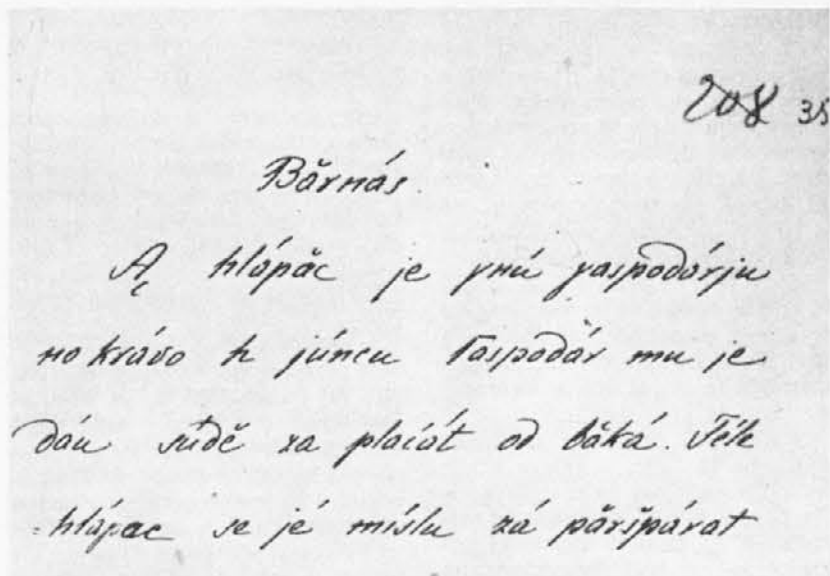 208 35
Bărnás.
Ą hlápăc je γnú γaspodárju
no krávo h júncu Γaspodár mu je
dáu súdĕ za plaćát od băká. Téle
hlápac se jé míslu zá păršpárat